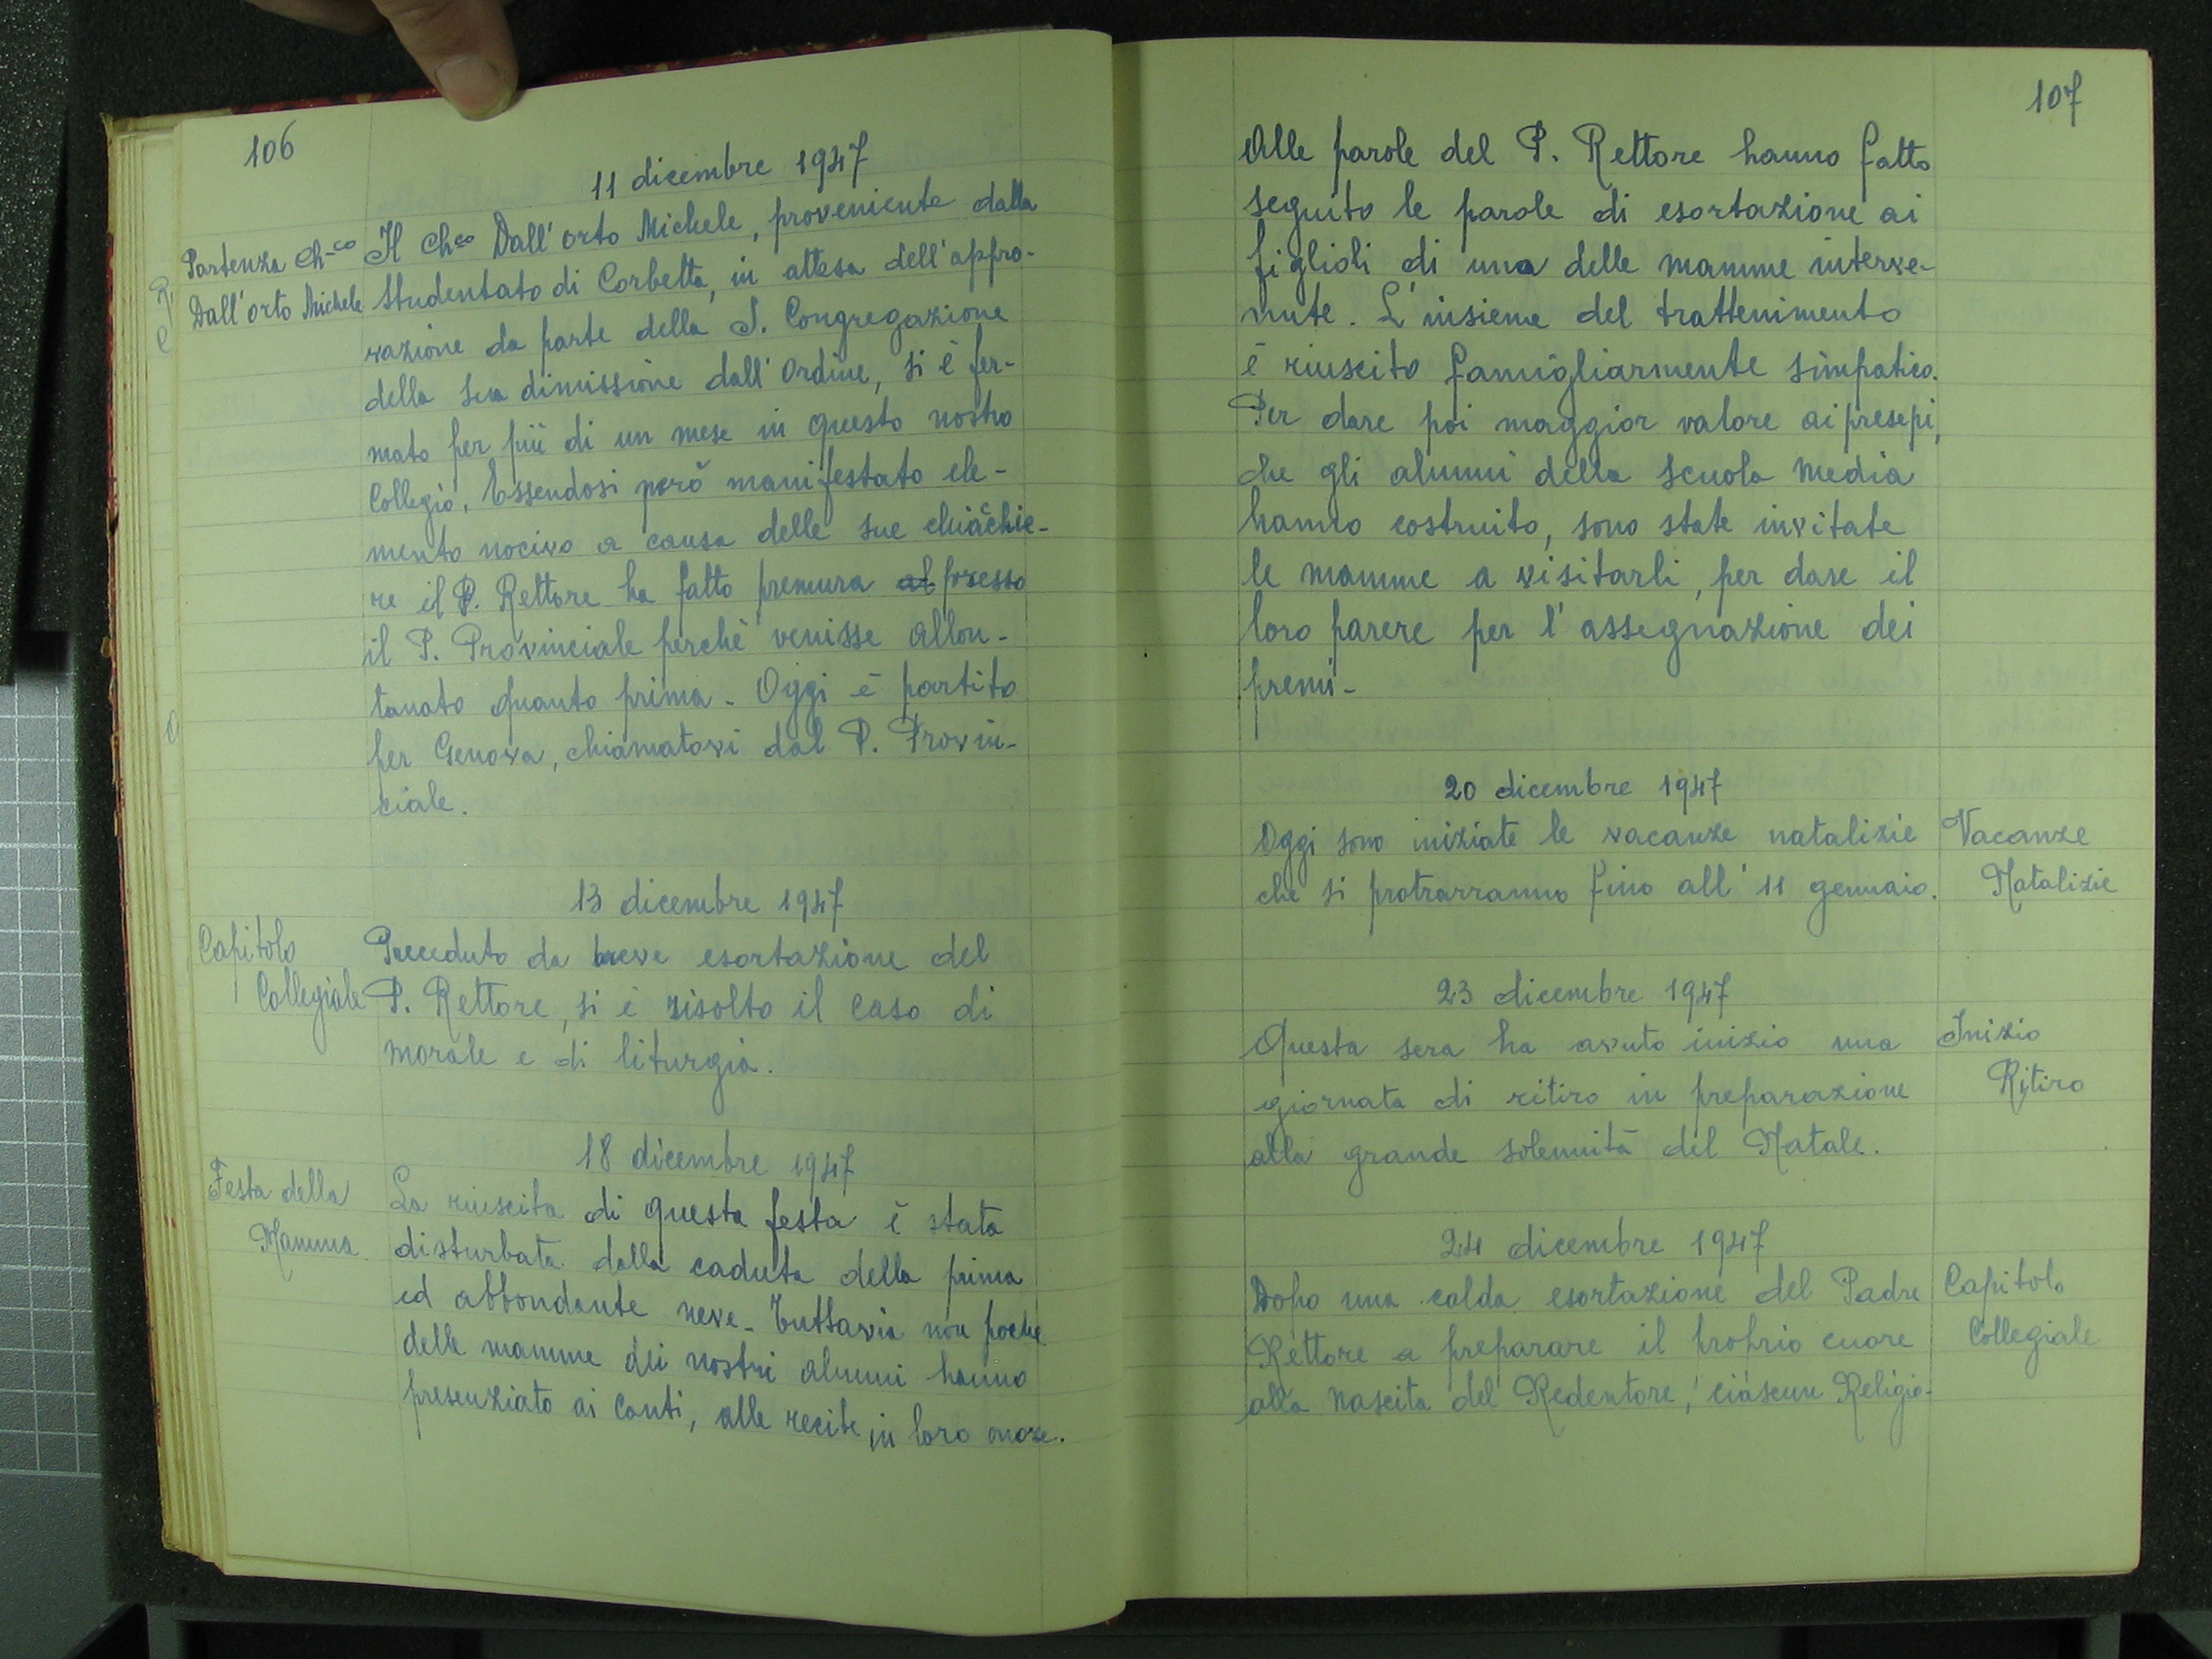 106
11 dicembre 1947
Partenza Ch-co
Dall'Orto Michele
Il Chco Dall'Orto Michele, proveniente dalla
Studentato di Corbetta, in attesa dell'appro-
vazione da parte della S. Congregazione
della sua dimissione dall'Ordine, si è fer-
mato per più di un mese in questo nostro
Collegio. Essendosi però manifestato ele-
mento nocivo a causa delle sue chiàchie-
re il P. Rettore ha fatto premura al presso
il P. Provinciale perchè venisse allon-
tanato quanto prima. Oggi è partito
per Genova, chiamatovi dal P. Provin-
ciale.
13 dicembre 1947
Capitolo
Collegiale
Preceduto da breve esortazione del
P. Rettore, si è risolto il caso di
morale e di liturgia.
18 dicembre 1947
Festa della
Mamma
La riuscita di questa festa è stata
disturbata dalla caduta della prima
ed abbondante neve. Tuttavia non poche
delle mamme dei nostri alunni hanno
presenziato ai canti, alle recite in loro onore.
107
Alle parole del P. Rettore hanno fatto
seguito le parole di esortazione ai
figlioli di una delle mamme interve-
nute. L'insieme del trattenimento
è riuscito famigliarmente simpatico.
Per dare poi maggior valore ai presepi,
che gli alunni della Scuola Media
hanno costruito, sono state invitate
le mamme a visitarli, per dare il
loro parere per l'assegnazione dei
premi-
20 dicembre 1947
Oggi sono iniziate le vacanze natalizie
che si protrarranno fino all'11 gennaio.
Vacanze
Natalizie
23 dicembre 1947
Questa sera ha avuto inizio una
giornata di ritiro in preparazione
alla grande solennità del Natale.
Inizio
Ritiro
24 dicembre 1947
Dopo una calda esortazione del Padre
Rettore a preparare il proprio cuore
alla nascita del Redentore, ciascun Religio-
Capitolo
Collegiale